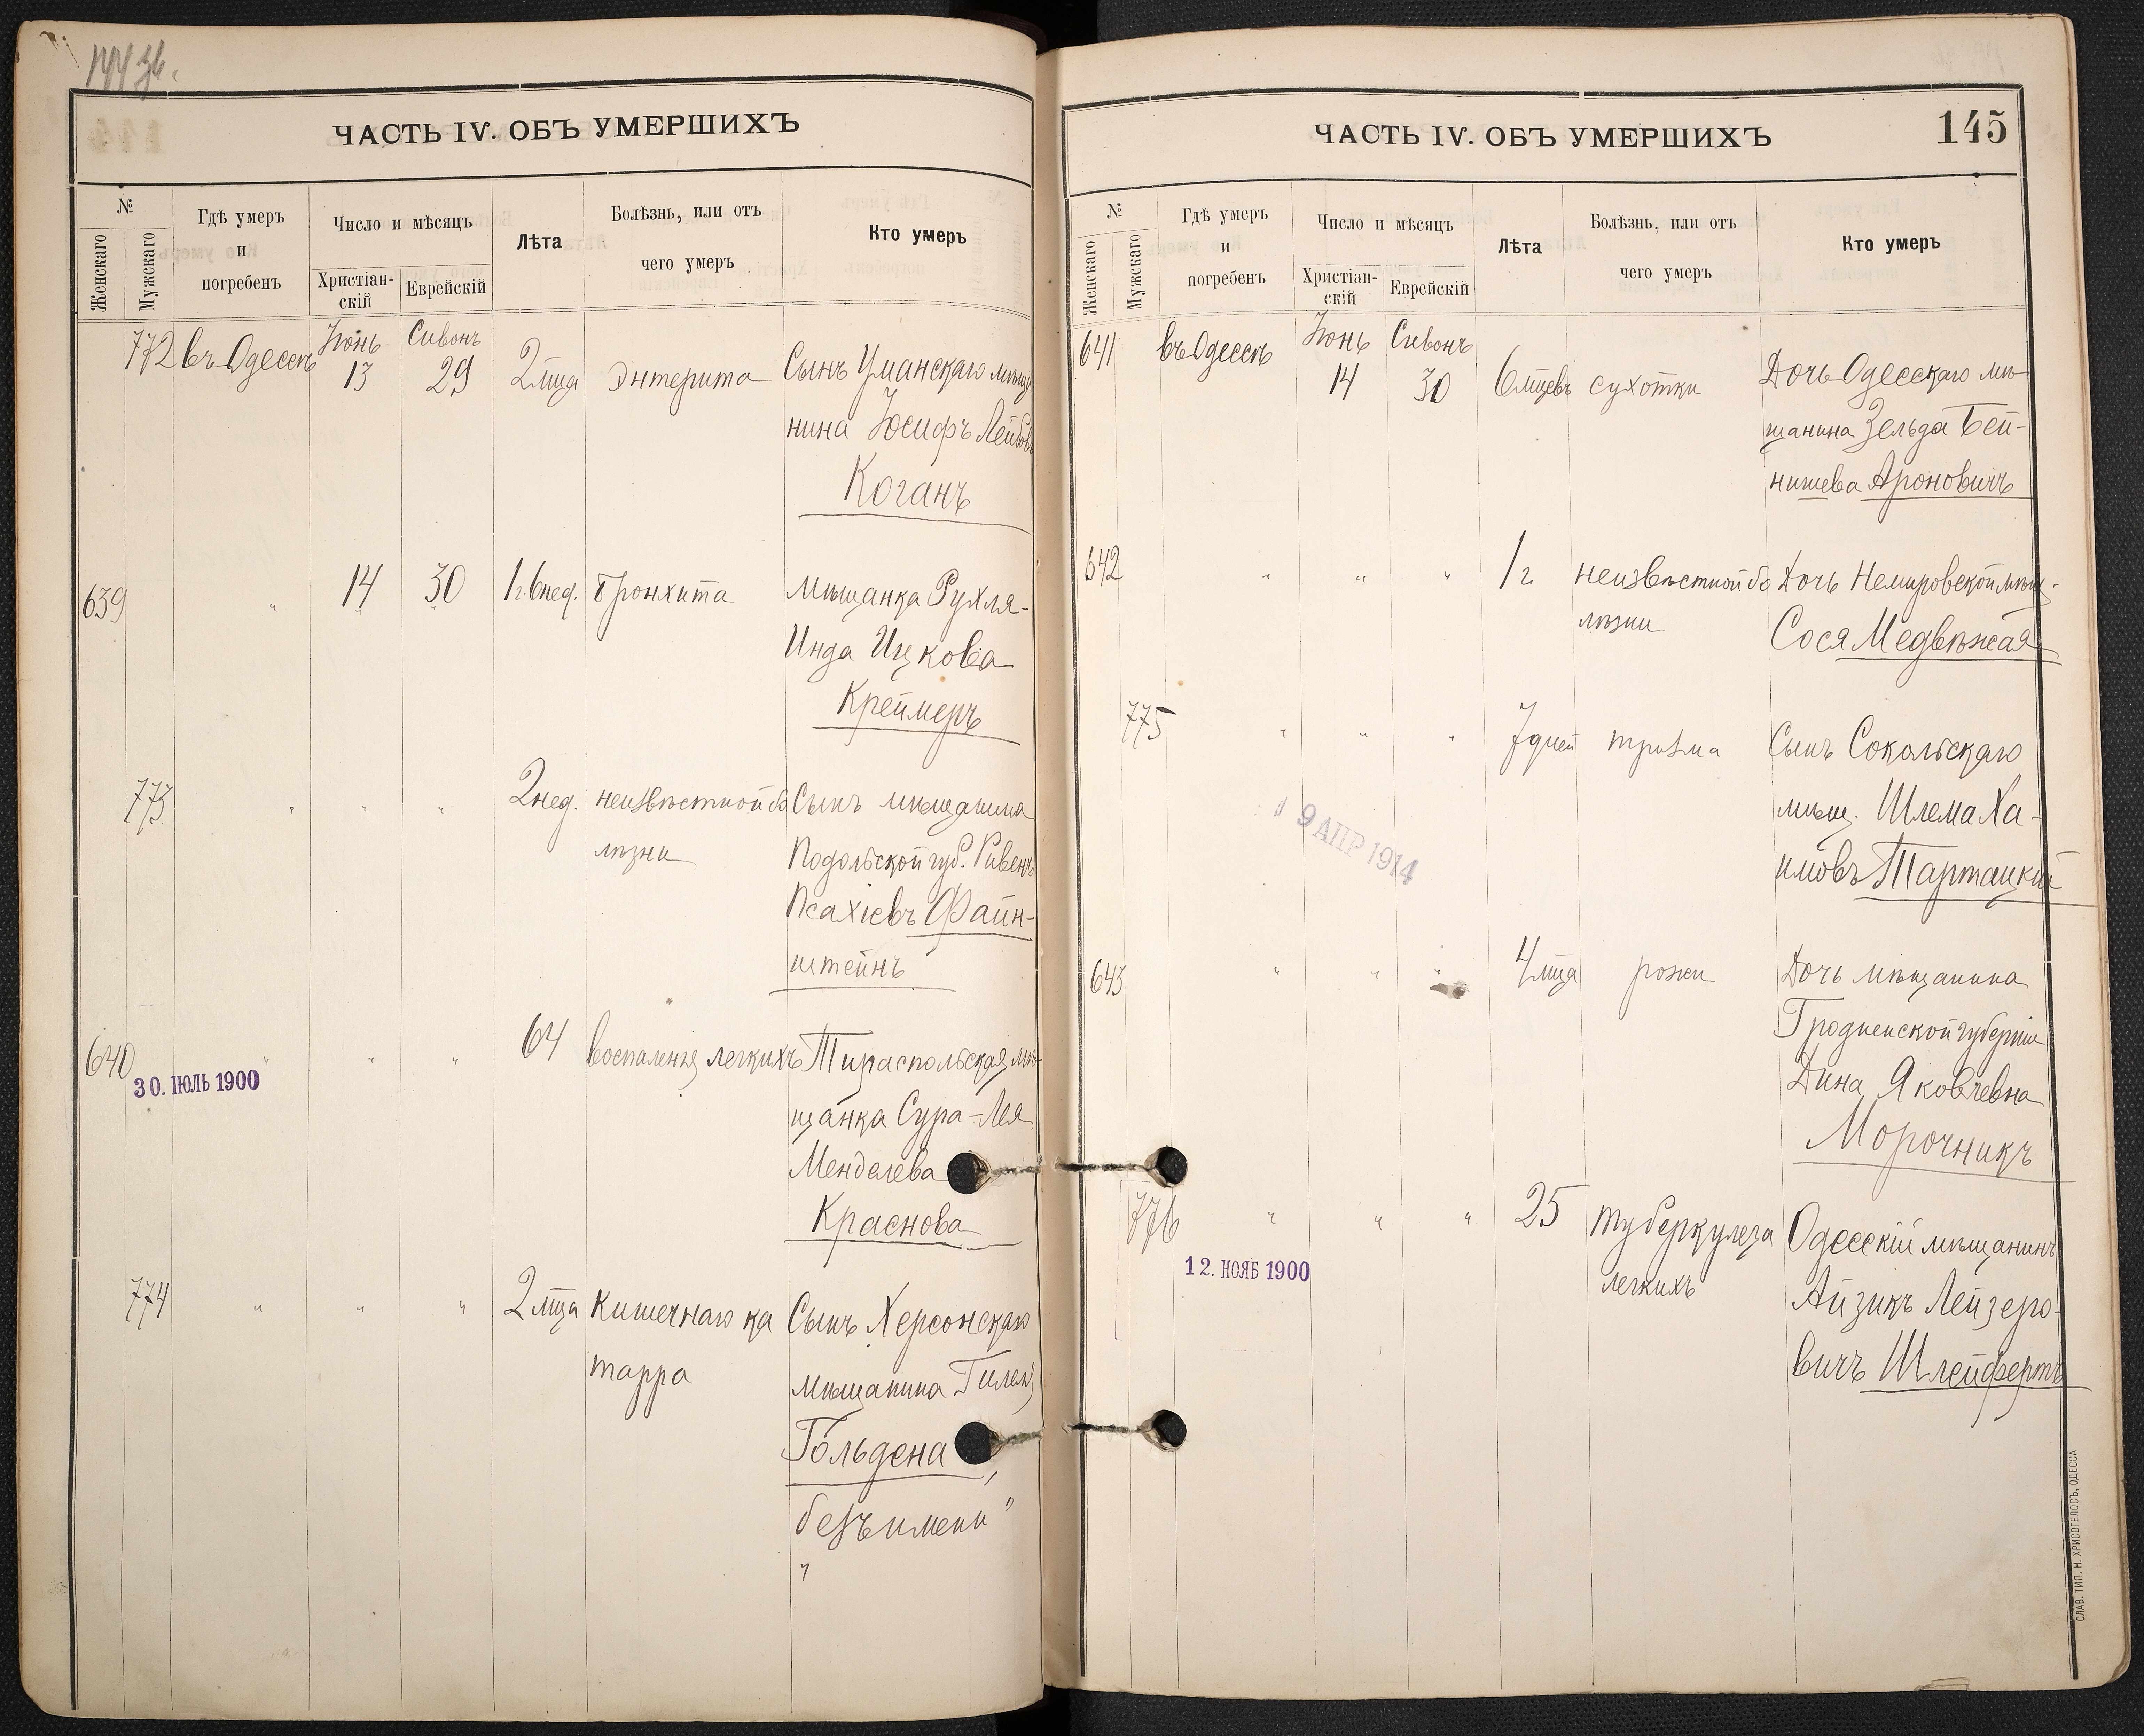 144 зб.
ЧАСТЬ IV. ОБЪ УМЕРШИХЪ
№
Женскаго
Мужскаго
Гдѣ умеръ
и
погребенъ
Число и мѣсяцъ
Христіан-
скій
Еврейскій
Лѣта
Болѣзнь, или отъ
чего умеръ
Кто умеръ
772 въ Одессѣ Іюнь 13 Сивонъ 29 2 м-ца Энтерита Сынъ Уманскаго мѣща
нина Іосифъ Лейбовъ
Коганъ
639 " 14 30 1 г. 6 нед. Бронхита Мѣщанка Рухля-
Инда Ицкова
Креймеръ
773 " " " 2 нед. неизвѣстной бо Сынъ мѣщанина
лѣзни Подольской губ. Рувенъ
Псахіевъ Файн-
штейнъ
640 " " " 64 воспаленія легкихъ Тираспольская мѣ-
30. ІЮЛЬ 1900
щанка Сура-Лея
Менделева
Краснова
774 " " " 2 м-ца Кишечнаго ка Сынъ Херсонскаго
тарра мѣщанина Гилеля
Гольдена
"безъ имени"
ЧАСТЬ IV. ОБЪ УМЕРШИХЪ
145
№
Женскаго
Мужскаго
Гдѣ умеръ
и
погребенъ
Число и мѣсяцъ
Христіан-
скій
Еврейскій
Лѣта
Болѣзнь, или отъ
чего умеръ
Кто умеръ
641 въ Одессѣ Іюнь 14 Сивонъ 30 6 м-цевъ сухотки Дочь Одесскаго мѣ
щанина Зельда Бей-
нишева Ароновичъ
642 " " " 1 г. неизвѣстной бо Дочь Немировской мѣщ.
лѣзни Сося Медвѣжая
775 " " " 7 дней тризма Сынъ Сокольскаго
мѣщ. Шлема Ха-
имовъ Тартацкій
9 АПР 1914
643 " " " 4 м-ца рожи Дочь мѣщанина
Гродненской губерніи
Дина Яковлевна
Морочникъ
776 " " " 25 туберкулеза Одесскій мѣщанинъ
12. НОЯБ 1900
легкихъ Айзикъ Лейзеро-
вичъ Шлейфертъ
СЛАВ. ТИП. Н. ХРИСОГЕЛОСЪ, ОДЕССА